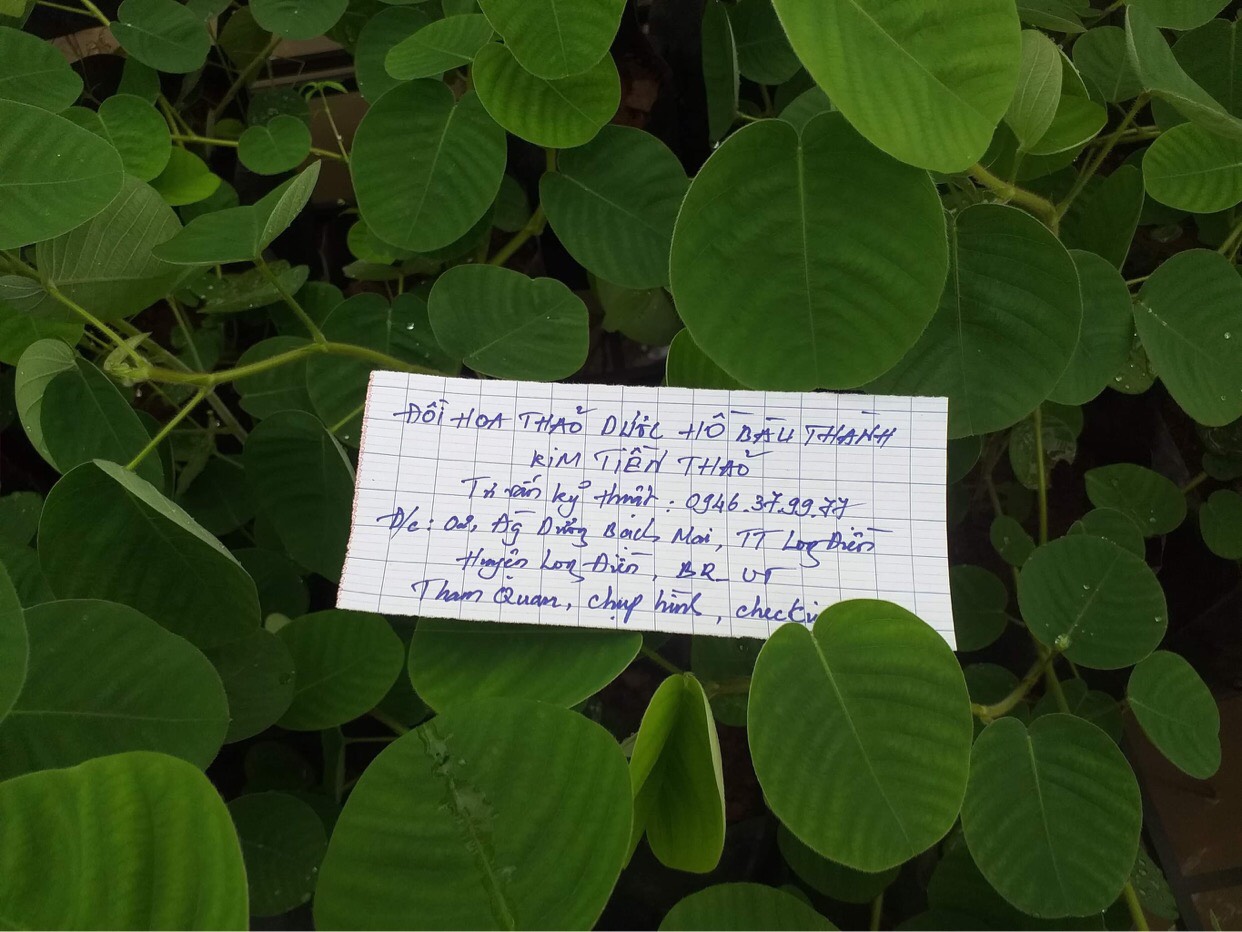 ĐỒI HOA THẢO DƯỢC HỒ BÀU THÀNH
KIM TIỀN THẢO
Tư vấn kỹ thuật: 0946.37.99.77
Đ/c: Ô2, Dương Bạch Mai, TT Long Điền
Huyện Long Điền, BR_VT
Tham Quan, chụp hình, checkin